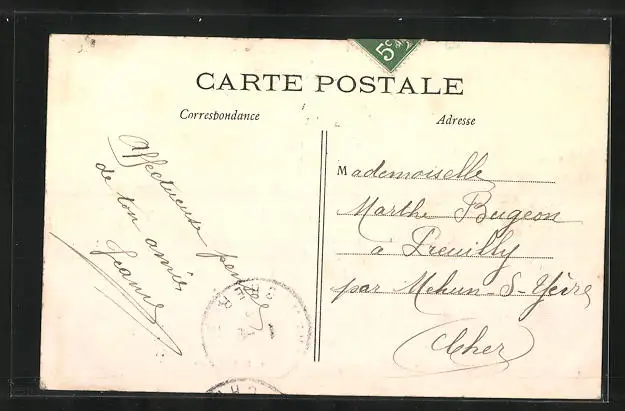 5c
CARTE POSTALE
Correspondance
Adresse
Affectueuse pensée
de ton amie
Jeanne
Mademoiselle
Marthe Bugeon
à Preuilly
par Mehun-S-Yèvre
(Cher)